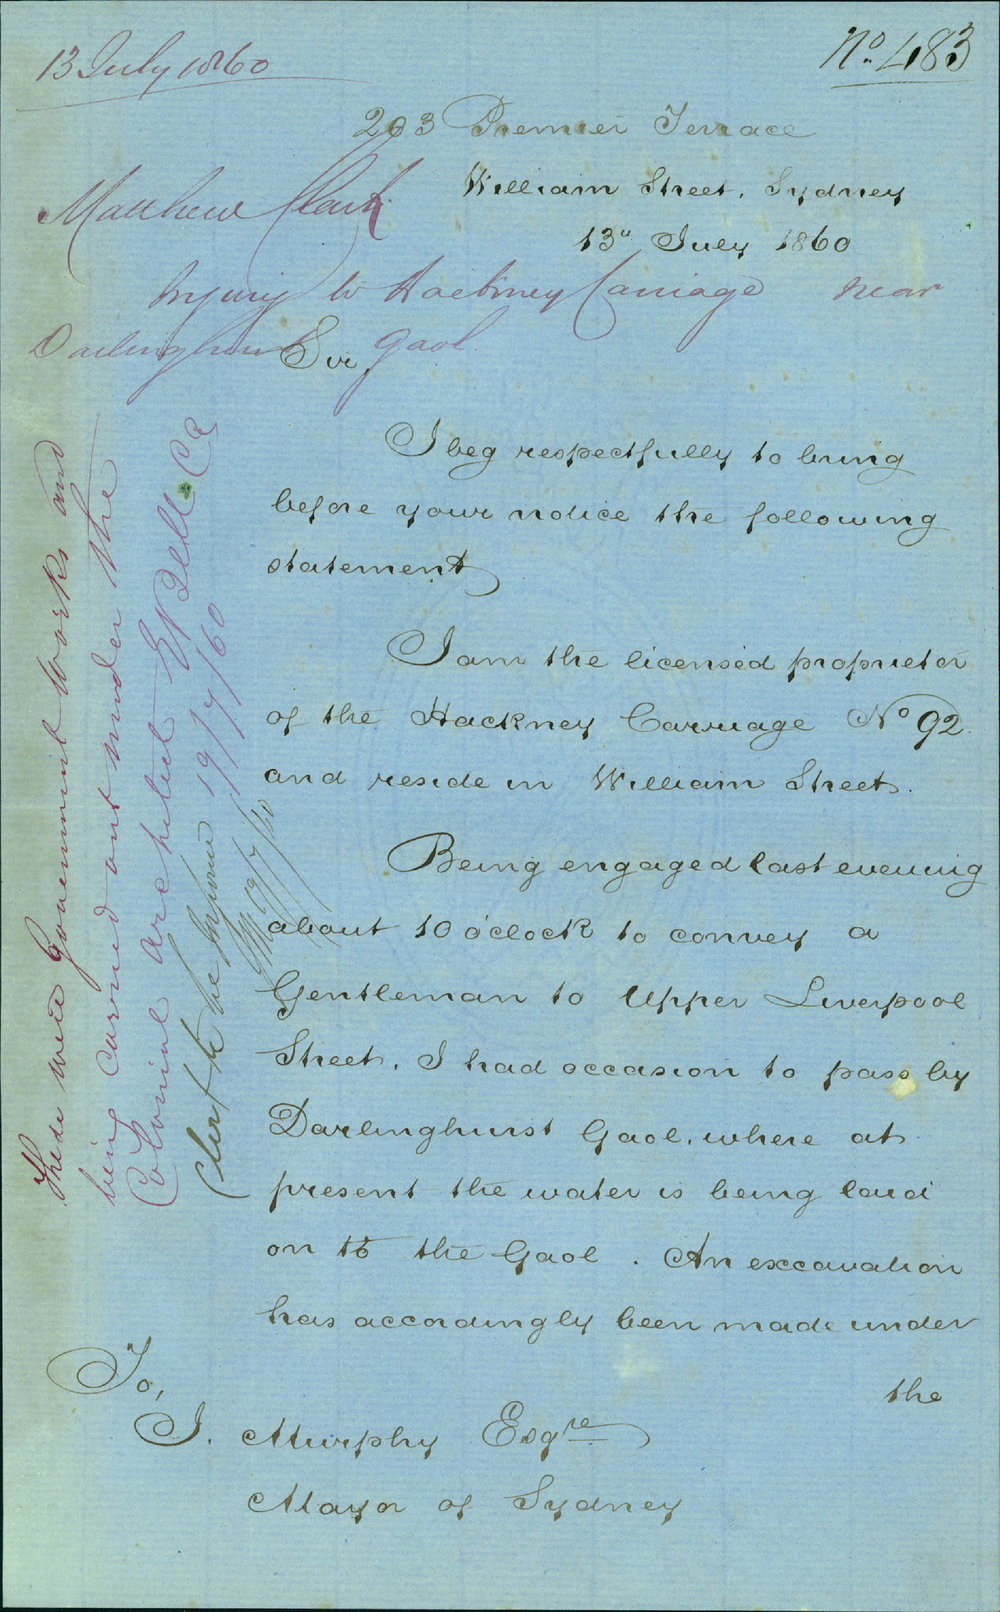 13 July 1860
No. 483
203 Premier Terrace
William Street. Sydney
13" July 1860
Matthew Clark
Injury to Hackney Carriage near
Darlinghurst Gaol
Sir,
I beg respectfully to bring
before your notice the following
statement
I am the licensed proprietor
of the Hackney Carriage No 92.
and reside in William Street.
Being engaged last evening
about 10 o'clock to convey a
Gentleman to Upper Liverpool
Street, I had occasion to pass by
Darlinghurst Gaol, where at
present the water is being laid
on to the Gaol. An excavation
has accordingly been made under
the
To,
J. Murphy Esqre
Mayor of Sydney
These were Government Works and
being carried out under the
Colonial Architect E Bell CE
19/7/60
Clerk to be informed
19/7/60